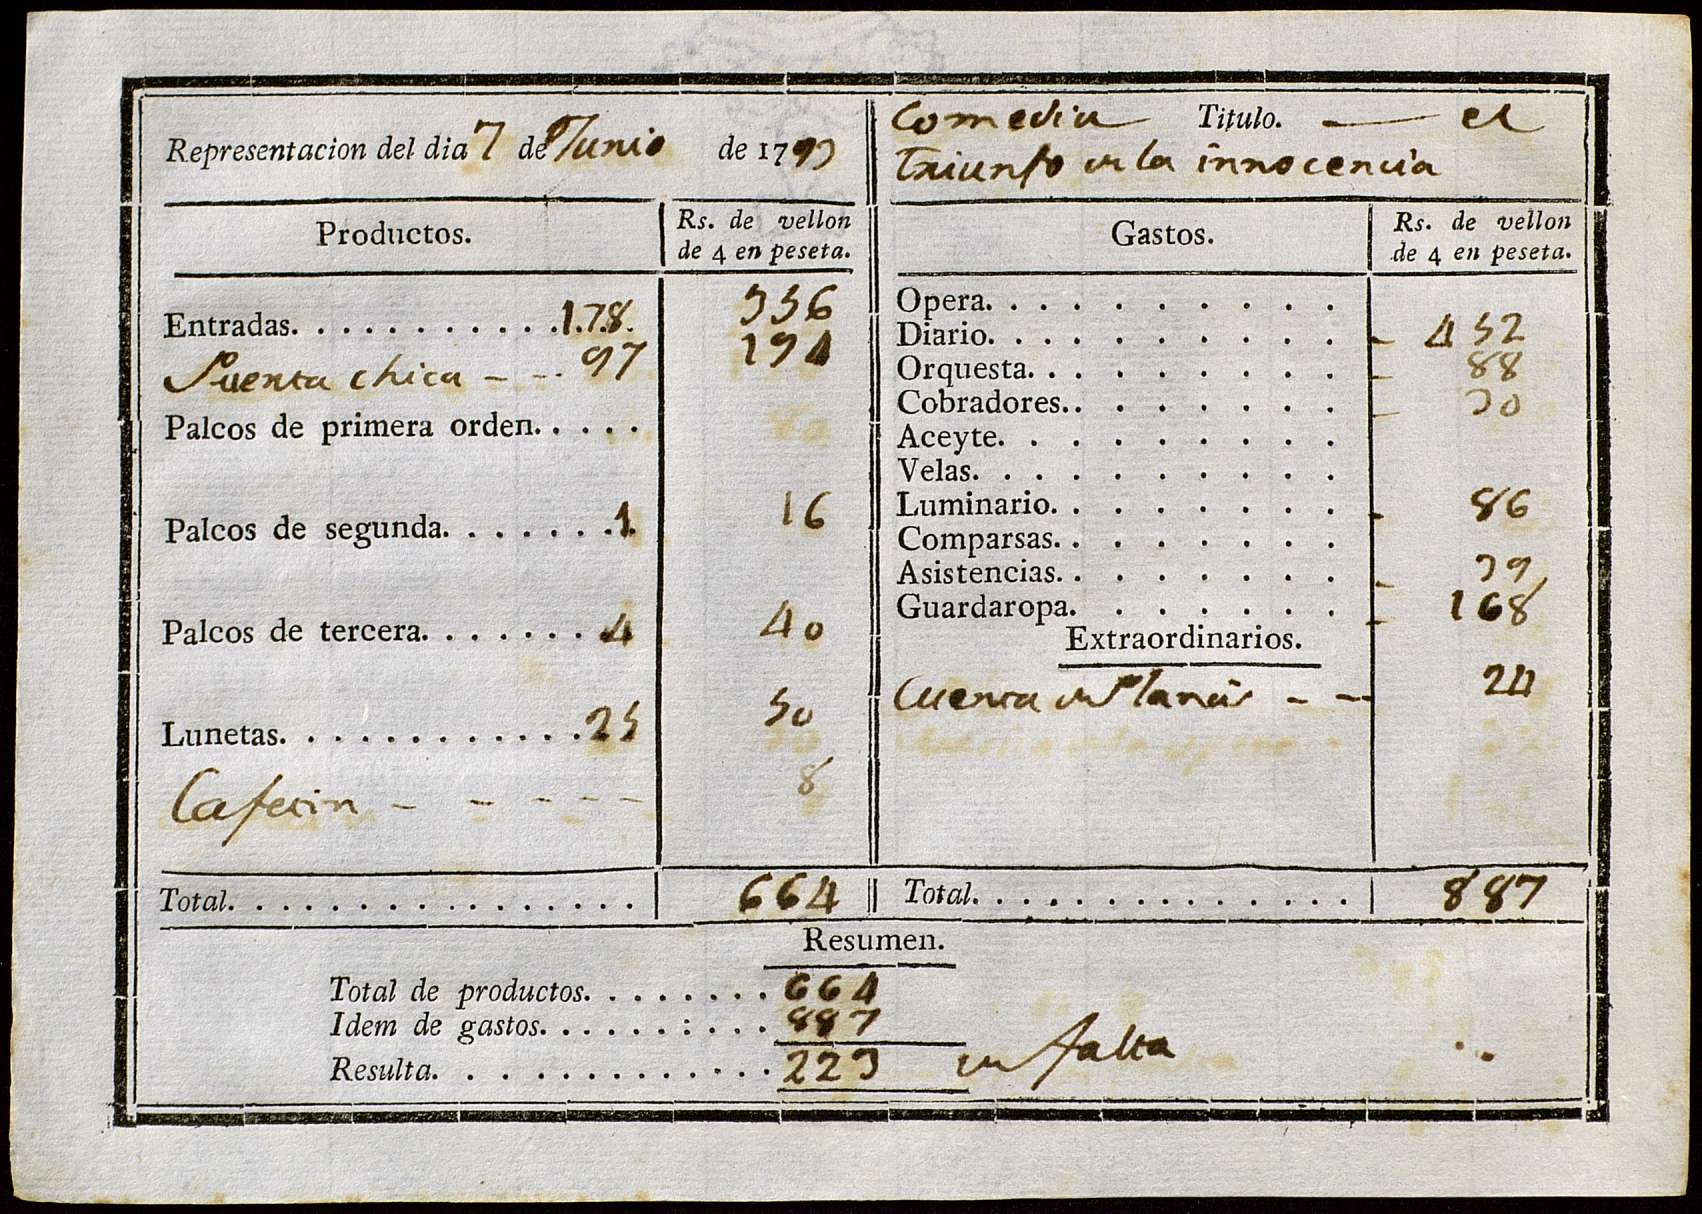 Representacion del dia 7 de Junio de 1793
Comedia Titulo. — el
Triunfo de la innocencia
Productos.
Rs. de vellon
de 4 en peseta.
Entradas. . . . . . . . . . . 178. 356
Puerta chica - - - 97 194
Palcos de primera orden. . . . .
Palcos de segunda. . . . . . . 1. 16
Palcos de tercera. . . . . . . 4 40
Lunetas. . . . . . . . . . . . 25 50
Cafetin - - - - - - 8
Total. . . . . . . . . . . . . . . . 664
Gastos.
Rs. de vellon
de 4 en peseta.
Opera. . . . . . . . . .
Diario. . . . . . . . . . - 452
Orquesta. . . . . . . . . - 88
Cobradores. . . . . . . . - 30
Aceyte. . . . . . . . .
Velas. . . . . . . . . .
Luminario. . . . . . . . - 86
Comparsas. . . . . . . .
Asistencias. . . . . . . . - 39
Guardaropa. . . . . . . - 168
Extraordinarios.
Cuenta de Planas - - - 24
Total. . . . . . . . . . . . . . . 887
Resumen.
Total de productos. . . . . . . . 664
Idem de gastos. . . . . . : . . . 887
Resulta. . . . . . . . . . . . . 223 de falta